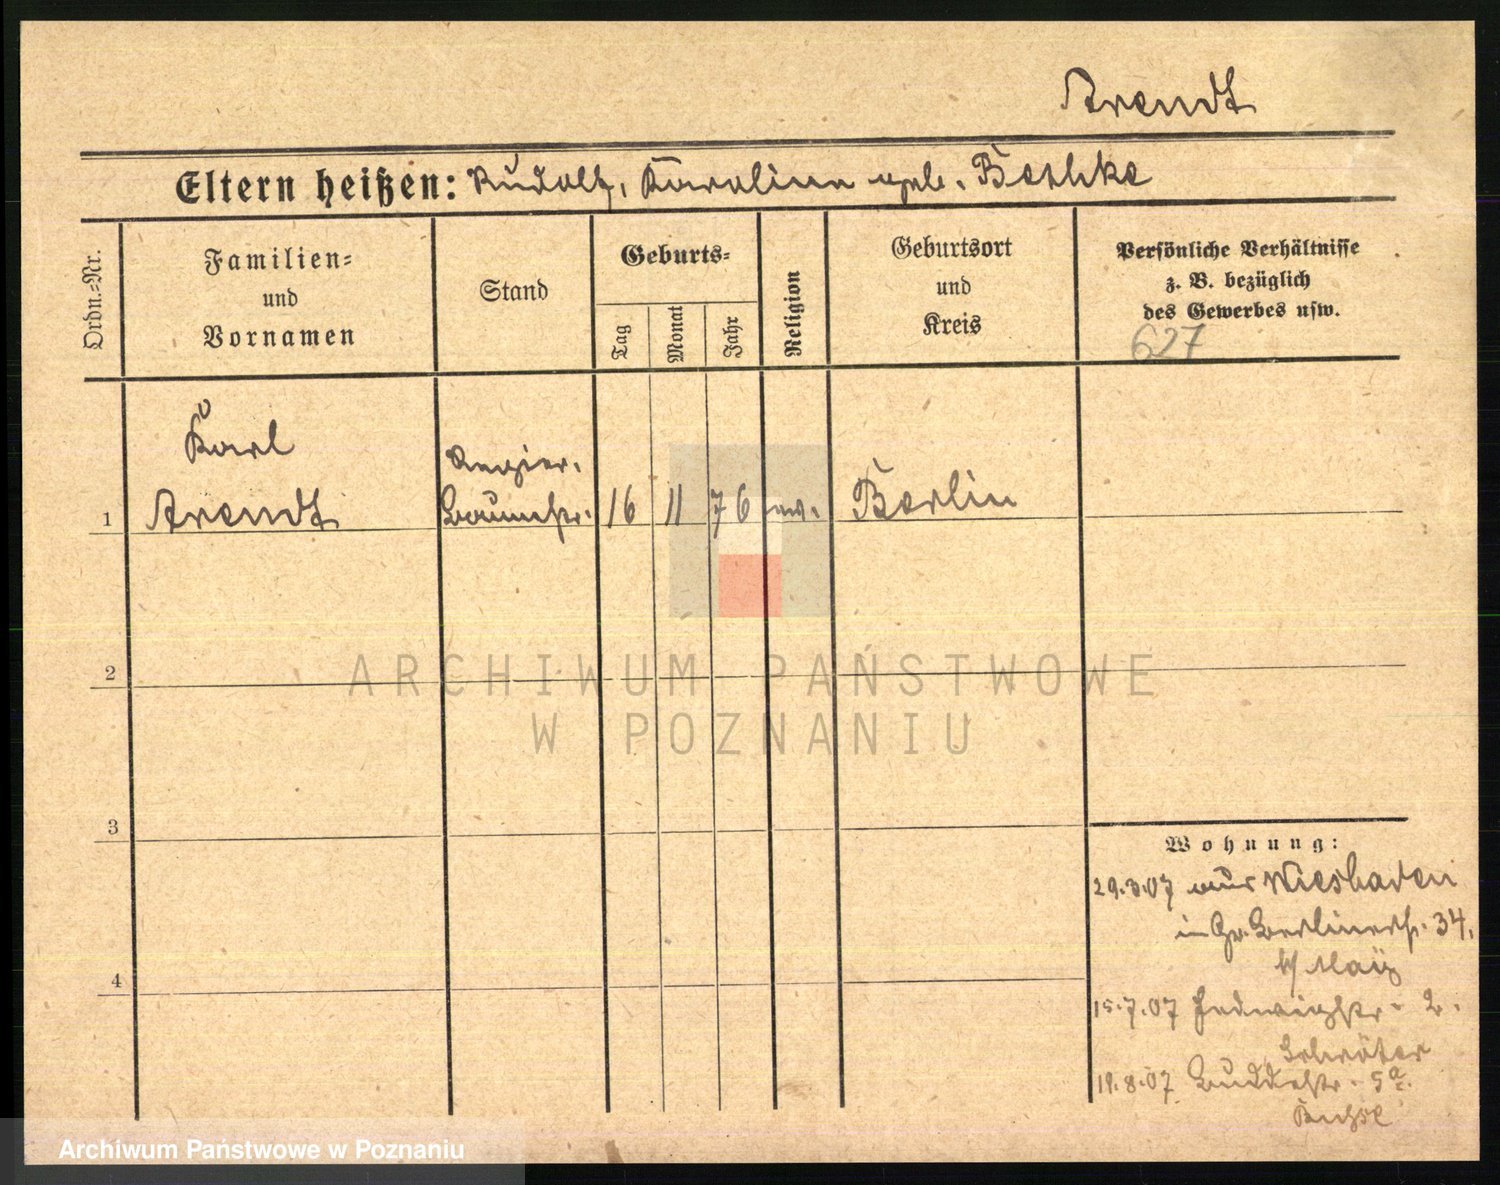 Arendt
Eltern heißen: Rudolf, Karoline geb. Beshke
Ordn.-Nr.
Familien-
und
Vornamen
Stand
Geburts-
Tag
Monat
Jahr
Religion
Geburtsort
und
Kreis
Persönliche Verhältnisse
z. B. bezüglich
des Gewerbes usw.
627
Karl
Regier.
1 Arendt Baumstr. 16 11 76 ev. Berlin
2
3
4
ARCHIWUM PAŃSTWOWE
W POZNANIU
Wohnung:
29.3.07 aus Wiesbaden
in Gr. Berlinerstr. 34.
b/ May
15.7.07 Hedwigstr. 2.
Schröter
19.8.07 Buddestr. 5a.
Busse
Archiwum Państwowe w Poznaniu